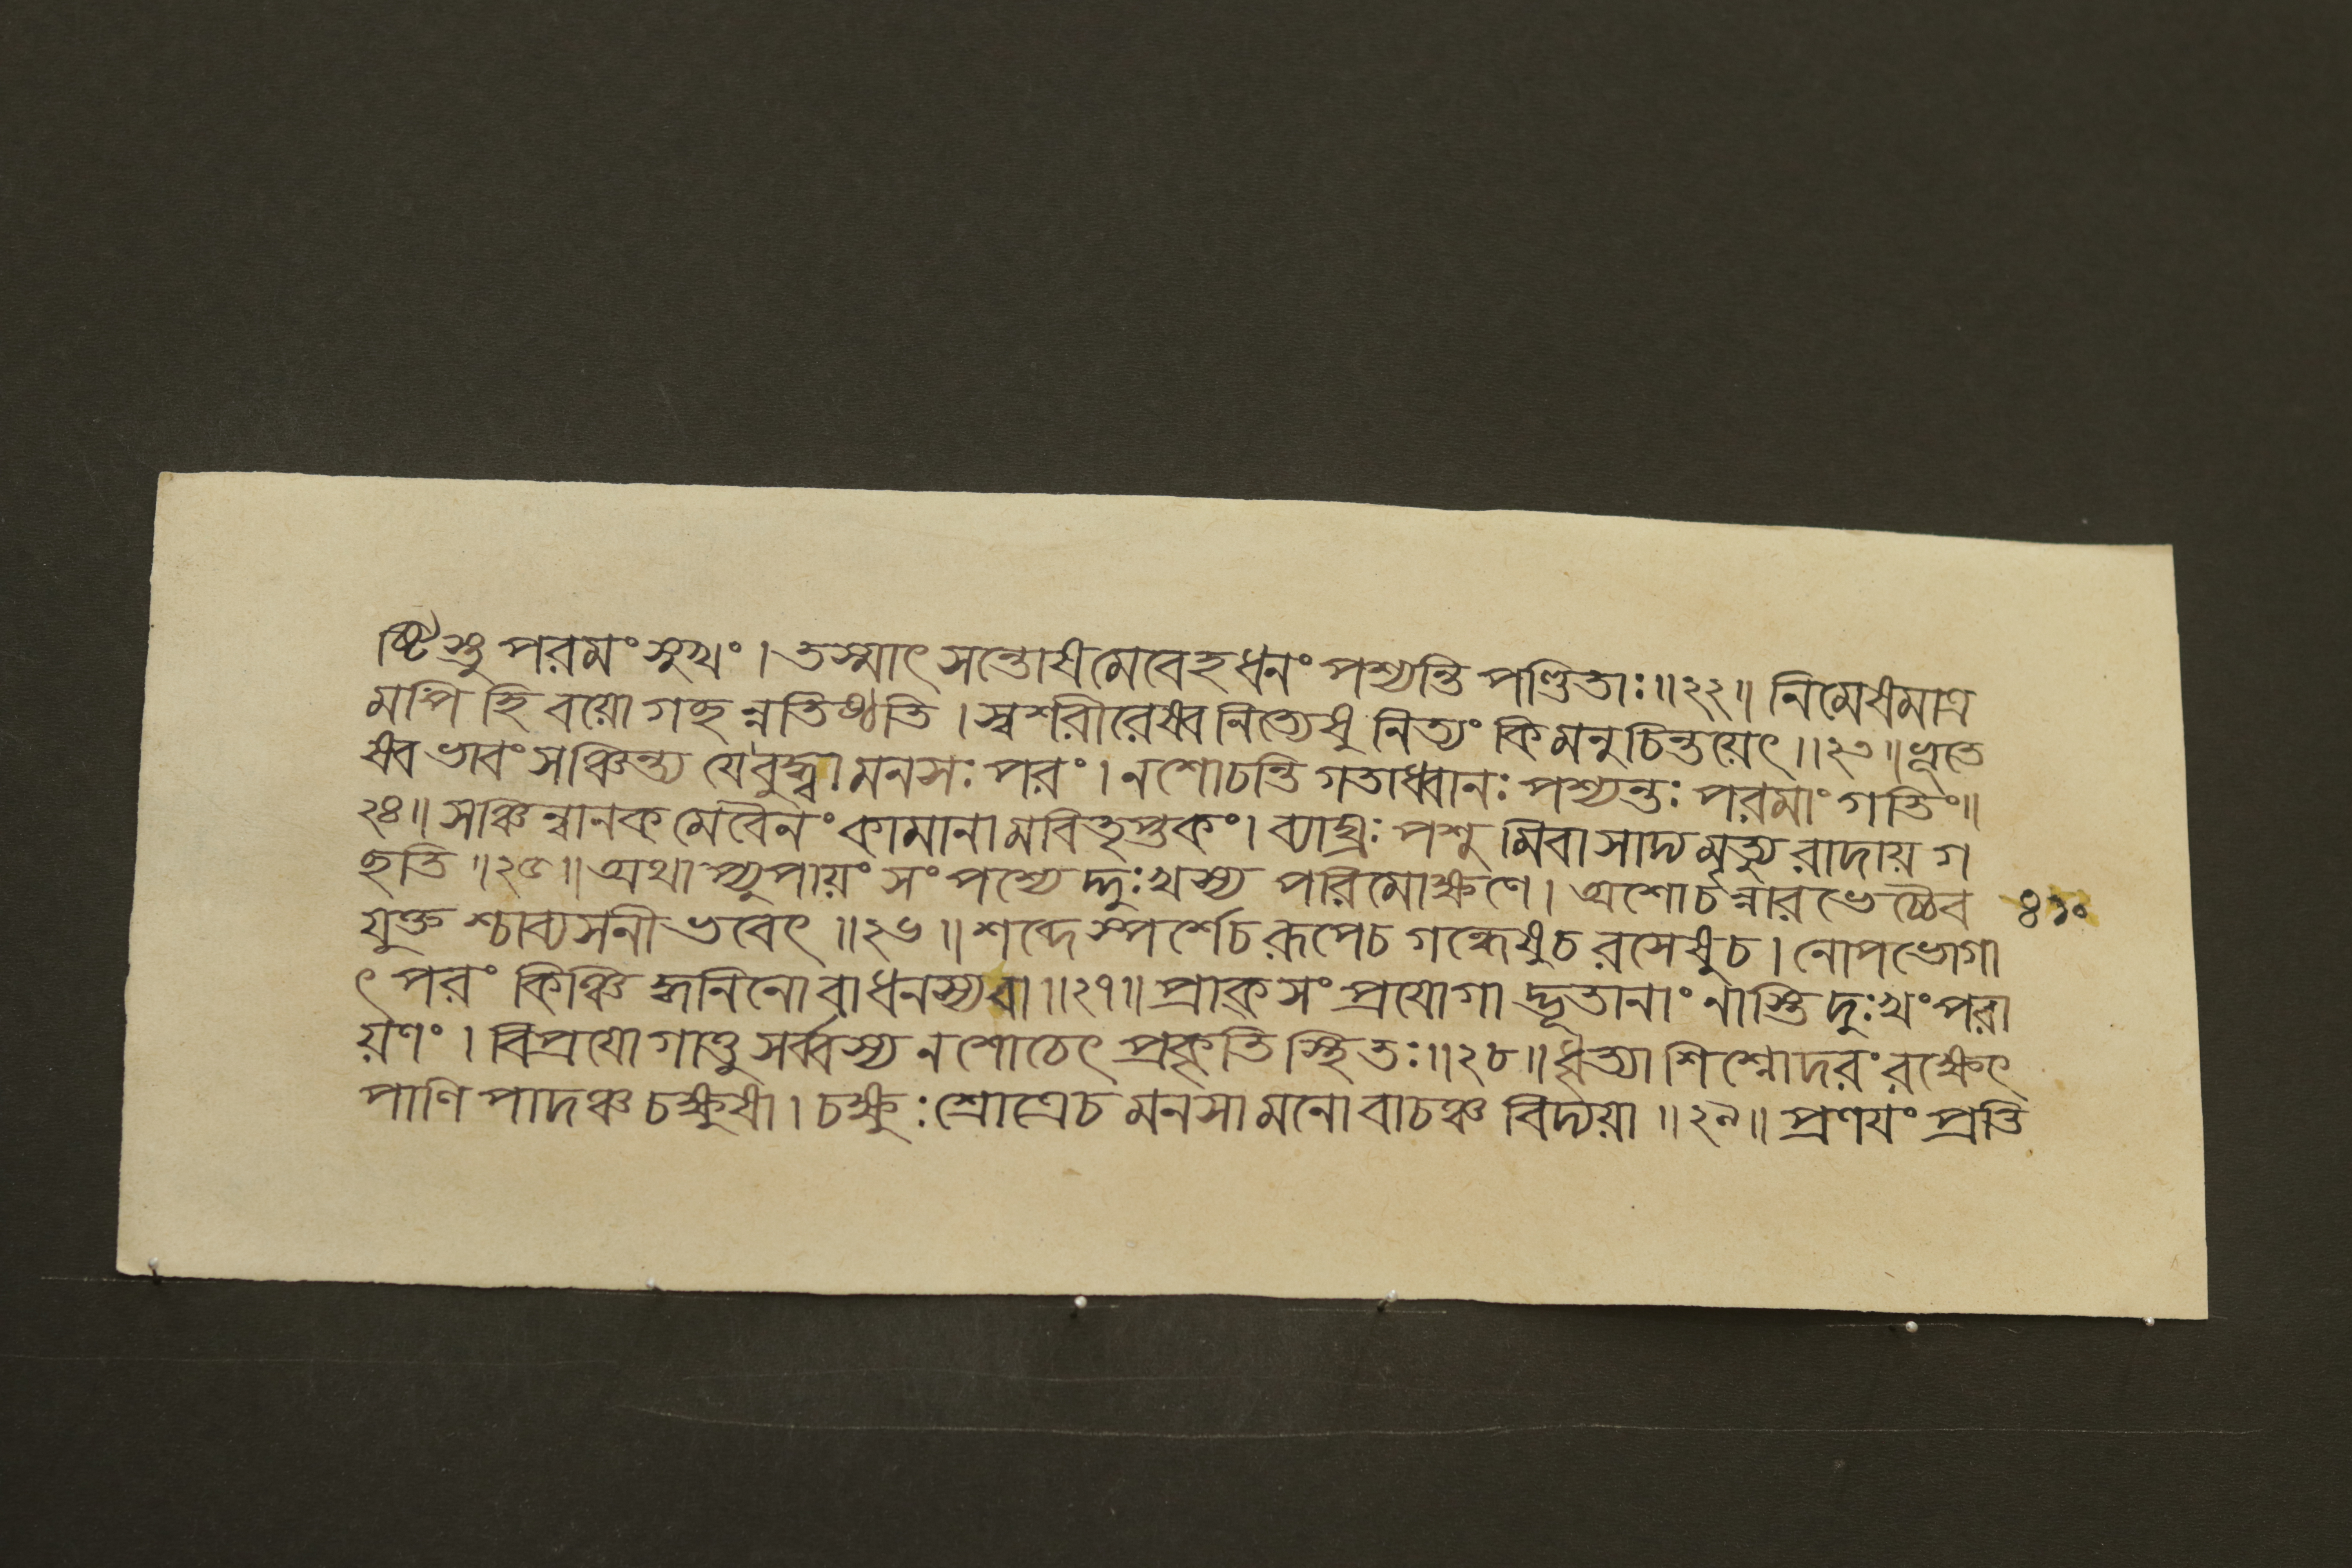 ষ্টিস্তু পরমং সুখং । তস্মাৎ সন্তোষমেবেহ ধনং পশ্যন্তি পণ্ডিতাঃ ॥ ২২ ॥ নিমেষমাত্র
মপি হি বয়ো গচ্ছন্নতিষ্ঠতি । স্বশরীরেষ্বনিত্যেষু নিত্যং কিমনুচিন্তয়েৎ ॥ ২৩ ॥ ভূতে
ষেব ভাবং সঞ্চিন্ত্য যে বুদ্ধ্বা মনসঃ পরং । ন শোচন্তি গতাধ্বানঃ পশ্যন্তঃ পরমাং গতিং ॥
২৪ ॥ সঞ্চিন্বানকমেবৈনং কামানামবিতৃপ্তকং । ব্যাঘ্রঃ পশুমিবাসাদ্য মৃত্যুরাদায় গ
চ্ছতি ॥ ২৫ ॥ অথাপ্যুপায়ং সংপশ্যেদ্দুঃখস্য পরিমোক্ষণে । অশোচন্নারভেচ্চৈব
যুক্তশ্চাব্যসনী ভবেৎ ॥ ২৬ ॥ শব্দে স্পর্শে চ রূপে চ গন্ধেষু চ রসেষু চ । নোপভোগা ৪১০
ৎ পরং কিঞ্চিদ্ধনিনো বাধনস্য বা ॥ ২৭ ॥ প্রাক্ সংপ্রযোগাদ্ভূতানাং নাস্তি দুঃখং পরা
য়ণং । বিপ্রযোগাত্তু সর্ব্বস্য ন শোচেৎ প্রকৃতিস্থিতঃ ॥ ২৮ ॥ ধৃত্যা শিশ্নোদরং রক্ষেৎ
পাণিপাদঞ্চ চক্ষুষা । চক্ষুঃশ্রোত্রে চ মনসা মনো বাচঞ্চ বিদ্যয়া ॥ ২৯ ॥ প্রণযং প্রতি